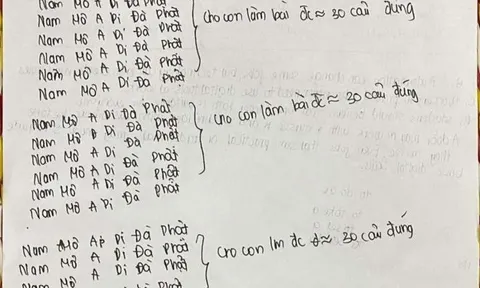 Nam Mô A Di Đà Phật
Nam Mô A Di Đà Phật
Nam Mô A Di Đà Phật
Nam Mô A Di Đà Phật
Nam Mô A Di Đà Phật
Nam Mô A Di Đà Phật
cho con làm bài đc ≈ 30 câu đúng
Nam Mô A Di Đà Phật
Nam Mô A Di Đà Phật
Nam Mô A Di Đà Phật
Nam Mô A Di Đà Phật
Nam Mô A Di Đà Phật
Nam Mô A Di Đà Phật
cho con làm bài đc ≈ 30 câu đúng
Nam Mô A Di Đà Phật
Nam Mô A Di Đà Phật
Nam Mô A Di Đà Phật
Phật
cro con lm đc ≈ 30 câu đúng